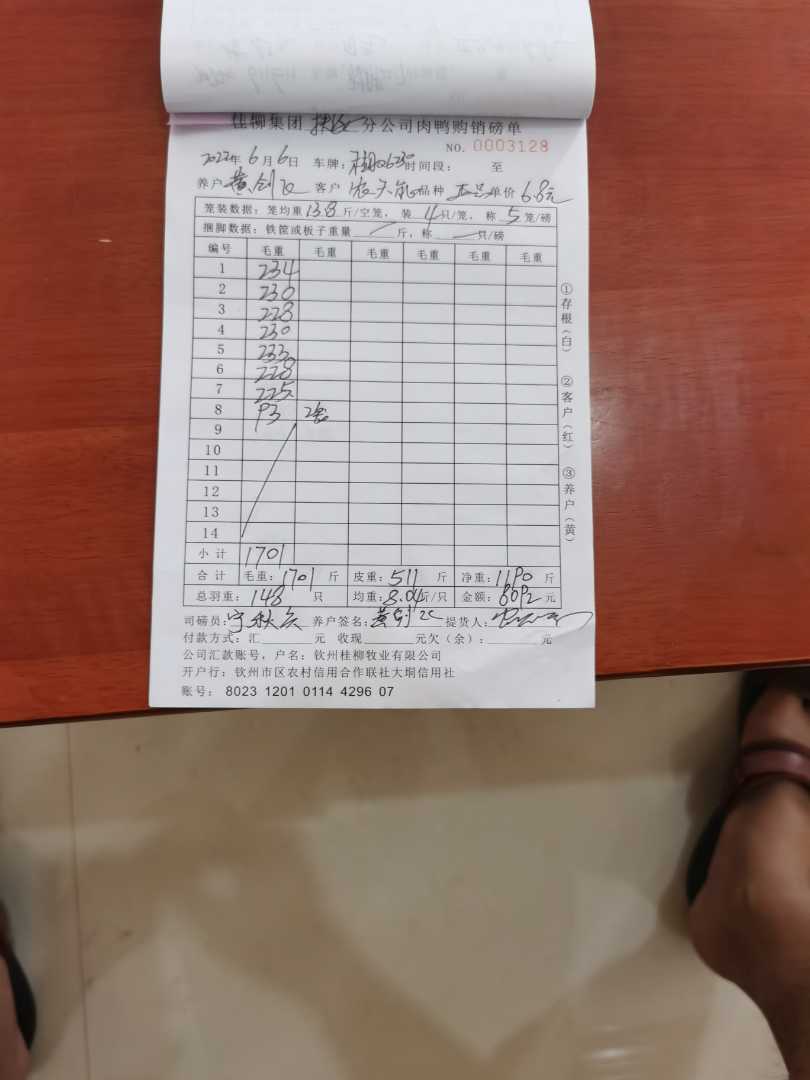 桂柳集团 分公司肉鸭购销磅单
NO. 0003128
2022年6月6日 车牌: 时间段: 至
养户 黄剑飞 客户 品种 单价 6.8元
笼装数据: 笼均重 13.8 斤/空笼, 装 4 只/笼, 称 5 笼/磅
捆脚数据: 铁筐或板子重量 斤, 称 只/磅
编号 毛重 毛重 毛重 毛重 毛重 毛重
1 234
2 230
3 228
4 230
5 233
6 228
7 225
8 93 2笼
9
10
11
12
13
14
小计 1701
合计 毛重: 1701 斤 皮重: 511 斤 净重: 1190 斤
总羽重: 148 只 均重: 8.04斤/只 金额: 8092 元
司磅员: 养户签名: 黄剑飞 提货人:
付款方式: 汇 元 收现 元欠(余): 元
公司汇款账号, 户名: 钦州桂柳牧业有限公司
开户行: 钦州市区农村信用合作联社大垌信用社
账号: 8023 1201 0114 4296 07
①存根(白)
②客户(红)
③养户(黄)